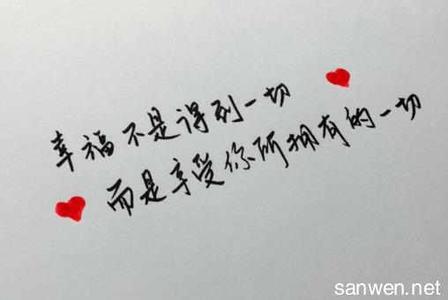 幸福不是得到一切
而是享受你所拥有的一切
sanwen.net